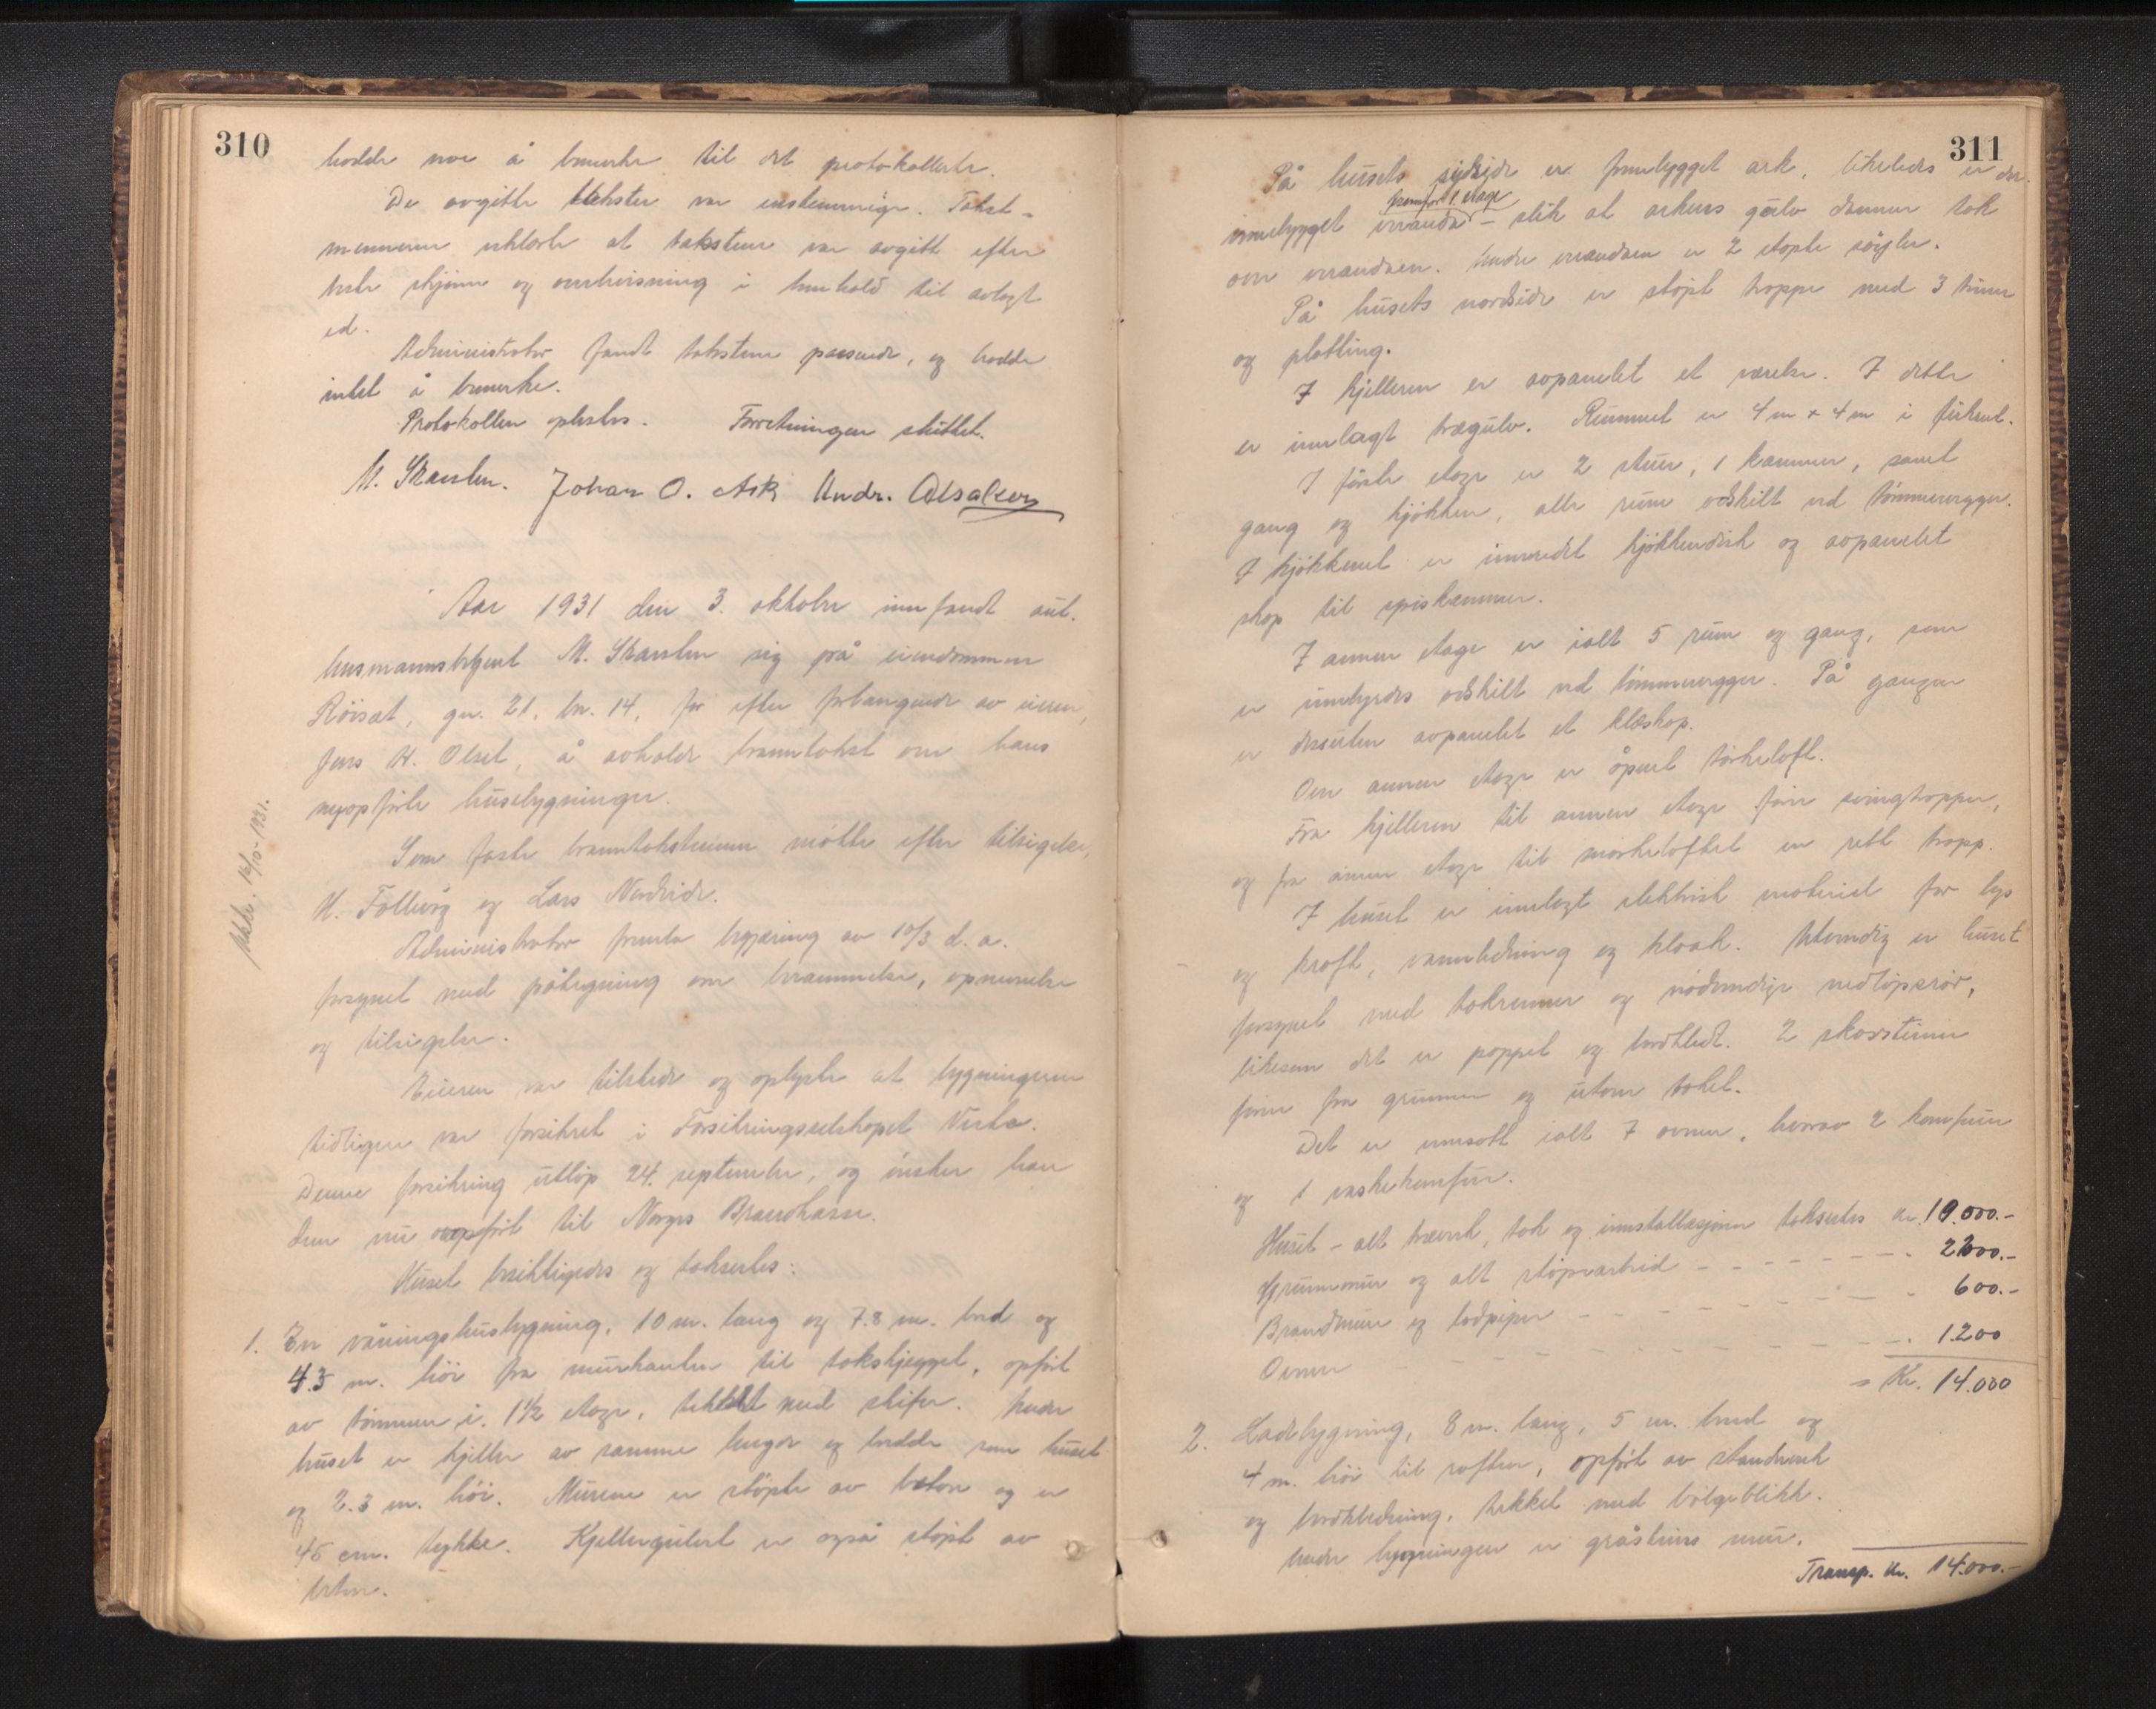 310
hadde noe å bemerke til det protokollerte.
De avgitte takster var enstemmige. Takst-
mennene erklærte at takstene var avgitt efter
beste skjønn og overbevisning i henhold til avlagt
ed.
Administrator fandt takstene passende, og hadde
intet å bemerke.
Protokollen oplestes. Forretningen sluttet.
M. Skarslen. Johan O. Ask Andr. Adsalsen
Aar 1931 den 3. oktober innfandt aut.
lensmannsbetjent M. Skarslen sig på eiendommen
Röisat, gn. 21. bn. 14, for efter forlangende av eieren,
Jens H. Olset, å avholde branntakst over hans
nyopførte husebygninger.
Som faste branntakstmenn møtte efter tilsigelse,
H. Follberg og Lars Nordeide.
Administrator fremla begjæring av 10/3 d. a.
forsynet med påtegning om berammelse, opnevnelse
og tilsigelse.
Eieren var tilstede og oplyste at bygningene
tidligere var forsikret i Forsikringsselskapet Vesta.
Denne forsikring utløp 24. september, og ønsker han
dem nu overført til Norges Brandkasse.
Huset besiktigedes og takseres:
1. En våningshusbygning, 10 m. lang og 7.8 m. bred og
4.5 m. höi fra murkanten til takskjegget, opført
av tømmer i 1 1/2 etage, tekket med skifer. Under
huset er kjeller av samme lengde og bredde som huset
og 2.3 m. höi. Murene er støpte av beton og er
45 cm. tykke. Kjellergulvet er også støpt av
beton.
Utskr. 16/10-1931.
311
På husets sydside er frembygget ark, likeledes er der
fremfor 1. etage
innebygget veranda - slik at arkens gulv danner tak
over verandaen. Under verandaen er 2 støpte søiler.
På husets nordside er støpt trappe med 3 trinn
og platting.
I kjelleren er avpanelet et værelse. I dette
er innlagt trægulv. Rummet er 4 m x 4 m i firkant.
I første etage er 2 stuer, 1 kammer, samt
gang og kjøkken, alle rum adskilt ved tømmervegger.
I kjøkkenet er innredet kjøkkendisk og avpanelet
skap til spiskammer.
I annen etage er ialt 5 rum og gang, som
er innbyrdes adskilt ved tømmervegger. På gangen
er dessuten avpanelet et klæskap.
Over annen etage er åpent tørkeloft.
Fra kjelleren til annen etage fører svingtrapper,
og fra annen etage til mørkeloftet en rett trapp.
I huset er innlagt elektrisk materiel for lys
og kraft, vannledning og kloak. Utvendig er huset
forsynet med takrenner og nødvendige nedløpsrør,
likesom det er pappet og bordkledt. 2 skorsteiner
fører fra grunnen og utover taket.
Det er innsatt ialt 7 ovner, hvorav 2 komfurer
og 1 vaskekomfur.
Huset - alt træverk, tak og innstallasjoner takseres kr. 10.000.-
Grunnmur og alt støpearbeid - - - - - - 2200.-
Brandmur og ledpiper - - - - - - - - 600.-
Ovner - - - - - - - - - - 1.200
= Kr. 14.000
2. Ladebygning, 8 m. lang, 5 m. bred og
4 m. höi til raften, opført av standverk
og bordkledning, tekket med bølgeblikk.
Under bygningen er gråsteins mur.
Transp. kr. 14.000.-